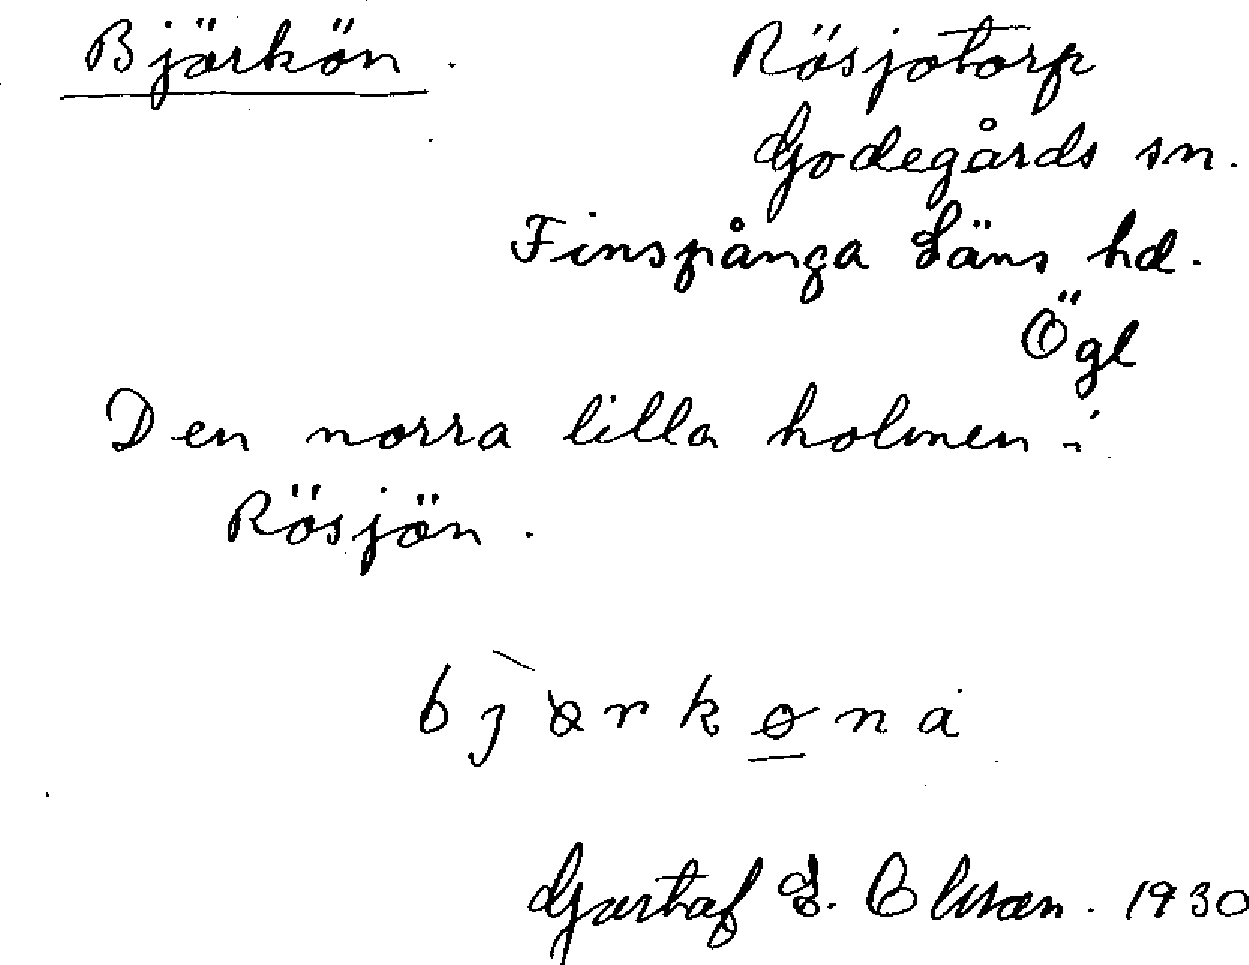 Björkön.
Rösjotorp
Godegårds sn.
Finspånga Läns hd.
Ögl
Den norra lilla holmen i
Rösjön.
Gustaf E. Olsson. 1930